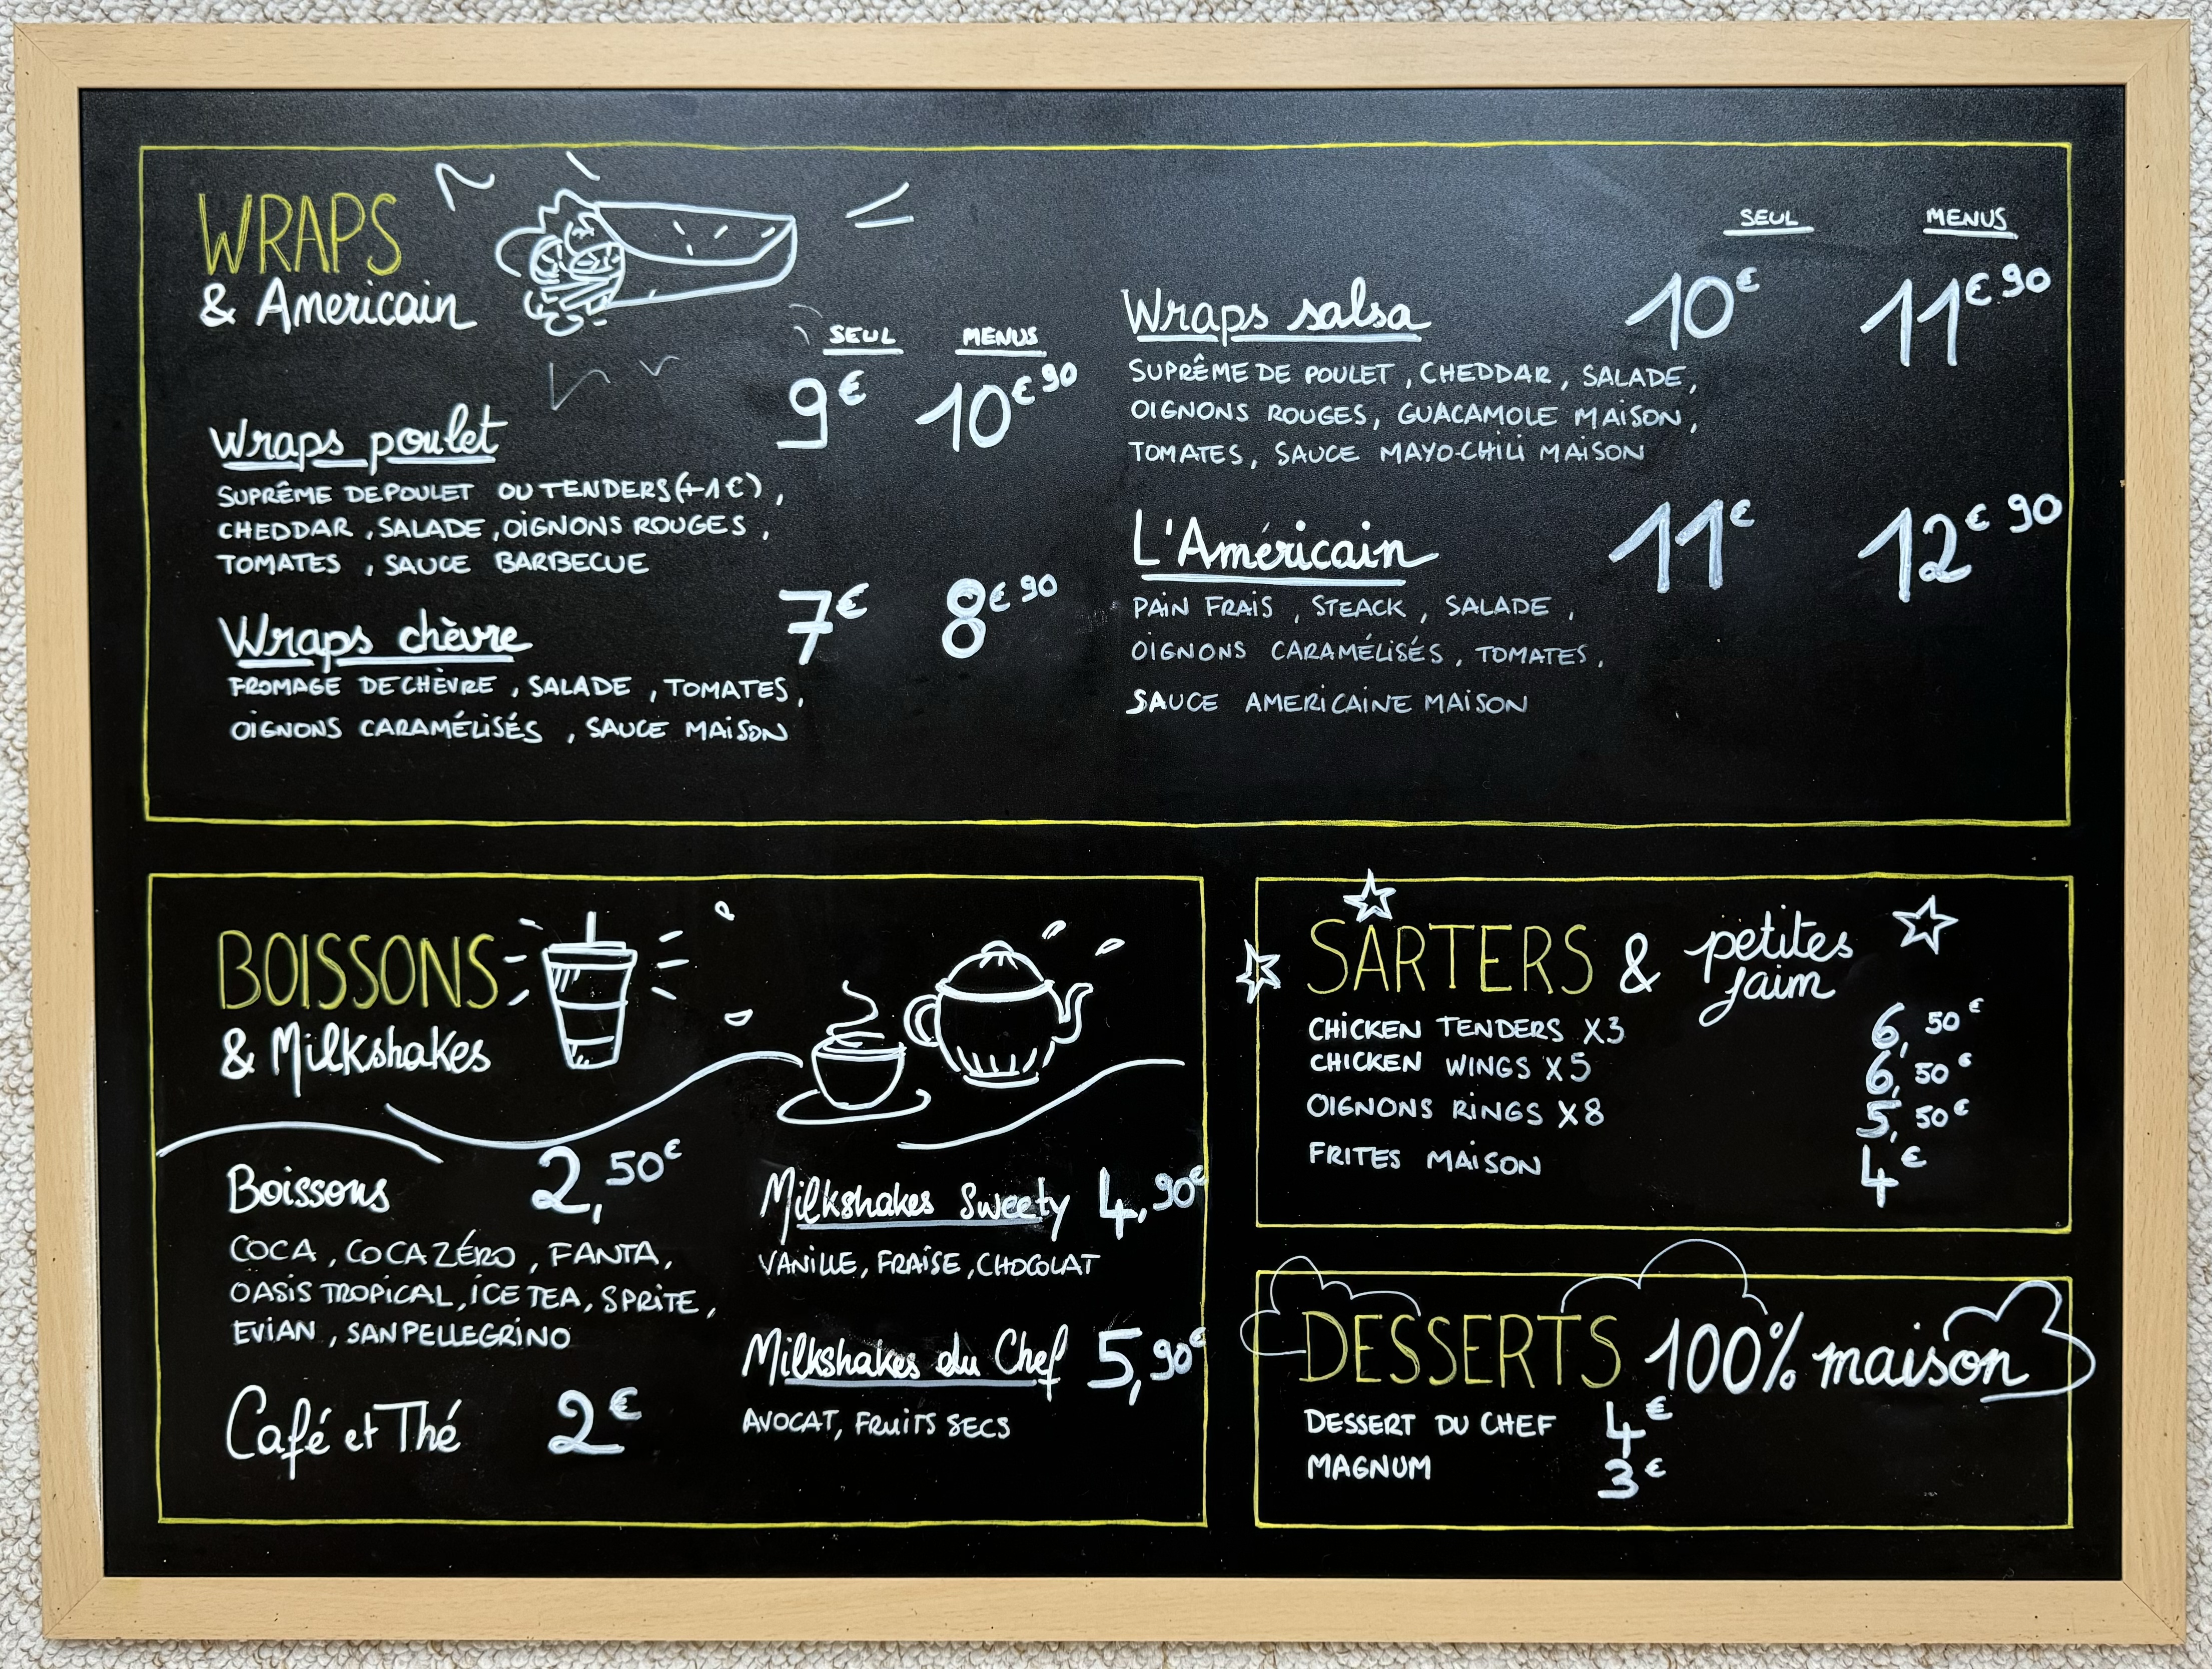 WRAPS
& Americain
SEUL MENUS
Wraps poulet 9€ 10€90
SUPRÊME DE POULET OU TENDERS (+1€),
CHEDDAR, SALADE, OIGNONS ROUGES,
TOMATES, SAUCE BARBECUE
Wraps chèvre 7€ 8€90
FROMAGE DE CHÈVRE, SALADE, TOMATES,
OIGNONS CARAMÉLISÉS, SAUCE MAISON
SEUL MENUS
Wraps salsa 10€ 11€90
SUPRÊME DE POULET, CHEDDAR, SALADE,
OIGNONS ROUGES, GUACAMOLE MAISON,
TOMATES, SAUCE MAYO-CHILI MAISON
L'Américain 11€ 12€90
PAIN FRAIS, STEACK, SALADE,
OIGNONS CARAMÉLISÉS, TOMATES,
SAUCE AMERICAINE MAISON
BOISSONS
& Milkshakes
Boissons 2,50€
COCA, COCA ZÉRO, FANTA,
OASIS TROPICAL, ICE TEA, SPRITE,
EVIAN, SAN PELLEGRINO
Café et Thé 2€
Milkshakes Sweety 4,90€
VANILLE, FRAISE, CHOCOLAT
Milkshakes du Chef 5,90€
AVOCAT, FRUITS SECS
SARTERS & petites faim
CHICKEN TENDERS X3 6,50€
CHICKEN WINGS X5 6,50€
OIGNONS RINGS X8 5,50€
FRITES MAISON 4€
DESSERTS 100% maison
DESSERT DU CHEF 4€
MAGNUM 3€